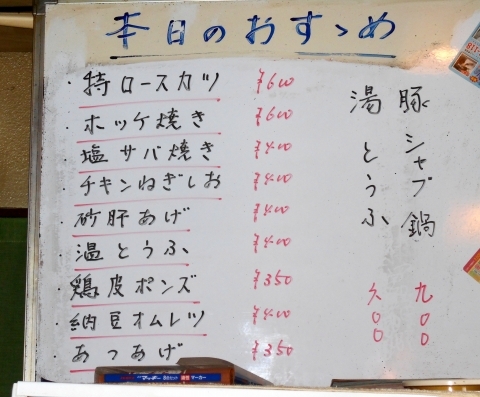 本日のおすゝめ
・特ロースカツ ¥600
・ホッケ焼き ¥600
・塩サバ焼き ¥400
・チキンねぎしお ¥400
・砂肝あげ ¥400
・温とうふ ¥400
・鶏皮ポンズ ¥350
・納豆オムレツ ¥400
・あつあげ ¥350
豚シャブ鍋 九〇〇
湯とうふ 六〇〇
マッキー